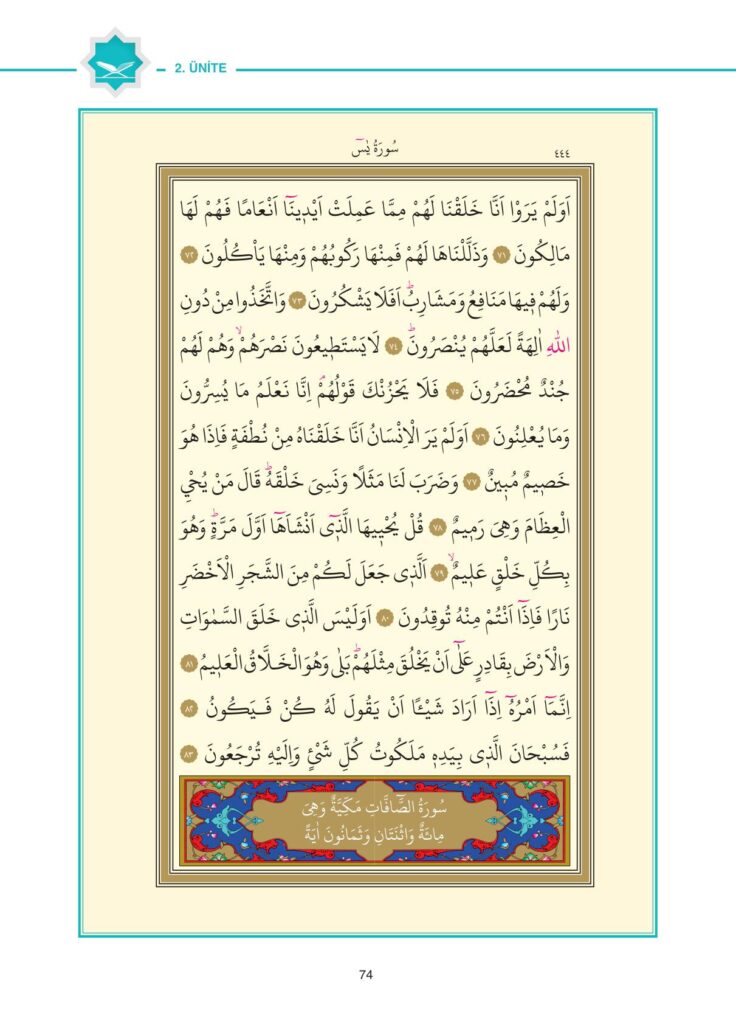 2. ÜNİTE
سُورَةُ يٰسٓ
٤٤٤
اَوَلَمْ يَرَوْا اَنَّا خَلَقْنَا لَهُمْ مِمَّا عَمِلَتْ اَيْد۪ينَٓا اَنْعَامًا فَهُمْ لَهَا
مَالِكُونَ ﴿٧١﴾ وَذَلَّلْنَاهَا لَهُمْ فَمِنْهَا رَكُوبُهُمْ وَمِنْهَا يَأْكُلُونَ ﴿٧٢﴾
وَلَهُمْ ف۪يهَا مَنَافِعُ وَمَشَارِبُۜ اَفَلَا يَشْكُرُونَ ﴿٧٣﴾ وَاتَّخَذُوا مِنْ دُونِ
اللّٰهِ اٰلِهَةً لَعَلَّهُمْ يُنْصَرُونَۜ ﴿٧٤﴾ لَا يَسْتَط۪يعُونَ نَصْرَهُمْۙ وَهُمْ لَهُمْ
جُنْدٌ مُحْضَرُونَ ﴿٧٥﴾ فَلَا يَحْزُنْكَ قَوْلُهُمْۢ اِنَّا نَعْلَمُ مَا يُسِرُّونَ
وَمَا يُعْلِنُونَ ﴿٧٦﴾ اَوَلَمْ يَرَ الْاِنْسَانُ اَنَّا خَلَقْنَاهُ مِنْ نُطْفَةٍ فَاِذَا هُوَ
خَص۪يمٌ مُب۪ينٌ ﴿٧٧﴾ وَضَرَبَ لَنَا مَثَلًا وَنَسِيَ خَلْقَهُۜ قَالَ مَنْ يُحْيِ
الْعِظَامَ وَهِيَ رَم۪يمٌ ﴿٧٨﴾ قُلْ يُحْي۪يهَا الَّذ۪ٓي اَنْشَاَهَٓا اَوَّلَ مَرَّةٍۜ وَهُوَ
بِكُلِّ خَلْقٍ عَل۪يمٌۙ ﴿٧٩﴾ اَلَّذ۪ي جَعَلَ لَكُمْ مِنَ الشَّجَرِ الْاَخْضَرِ
نَارًا فَاِذَٓا اَنْتُمْ مِنْهُ تُوقِدُونَ ﴿٨٠﴾ اَوَلَيْسَ الَّذ۪ي خَلَقَ السَّمٰوَاتِ
وَالْاَرْضَ بِقَادِرٍ عَلٰٓى اَنْ يَخْلُقَ مِثْلَهُمْۜ بَلٰى وَهُوَ الْخَلَّاقُ الْعَل۪يمُ ﴿٨١﴾
اِنَّمَٓا اَمْرُهُٓ اِذَٓا اَرَادَ شَيْـًٔا اَنْ يَقُولَ لَهُ كُنْ فَيَكُونُ ﴿٨٢﴾
فَسُبْحَانَ الَّذ۪ي بِيَدِه۪ مَلَكُوتُ كُلِّ شَيْءٍ وَاِلَيْهِ تُرْجَعُونَ ﴿٨٣﴾
سُورَةُ الصَّٓافَّاتِ مَكِّيَّةٌ وَهِيَ
مِائَةٌ وَاثْنَتَانِ وَثَمَانُونَ اٰيَةً
74